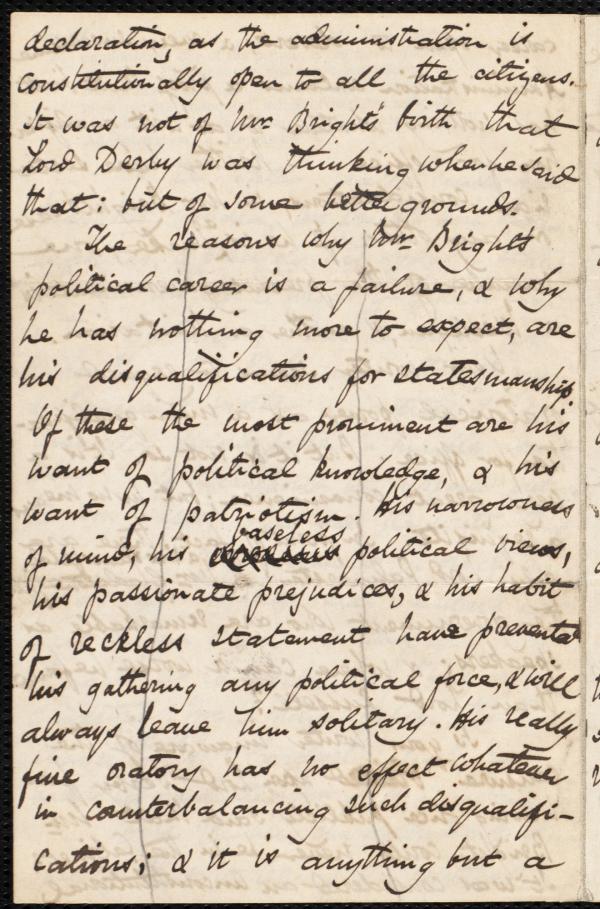 declaration, as the administration is
constitutionally open to all the citizens.
It was not of Mr. Bright's birth that
Lord Derby was thinking when he said
that: but of some better grounds.
The reasons why Mr. Bright's
political career is a failure, & why
he has nothing more to expect, are
his disqualifications for statesmanship.
Of these the most prominent are his
want of political knowledge, & his
want of patriotism. His narrowness
baseless
of mind, his political views,
his passionate prejudices, & his habit
of reckless statement have prevented
his gathering any political force, & will
always leave him solitary. His really
fine oratory has no effect whatever
in counterbalancing such disqualifi-
cations; & it is anything but a